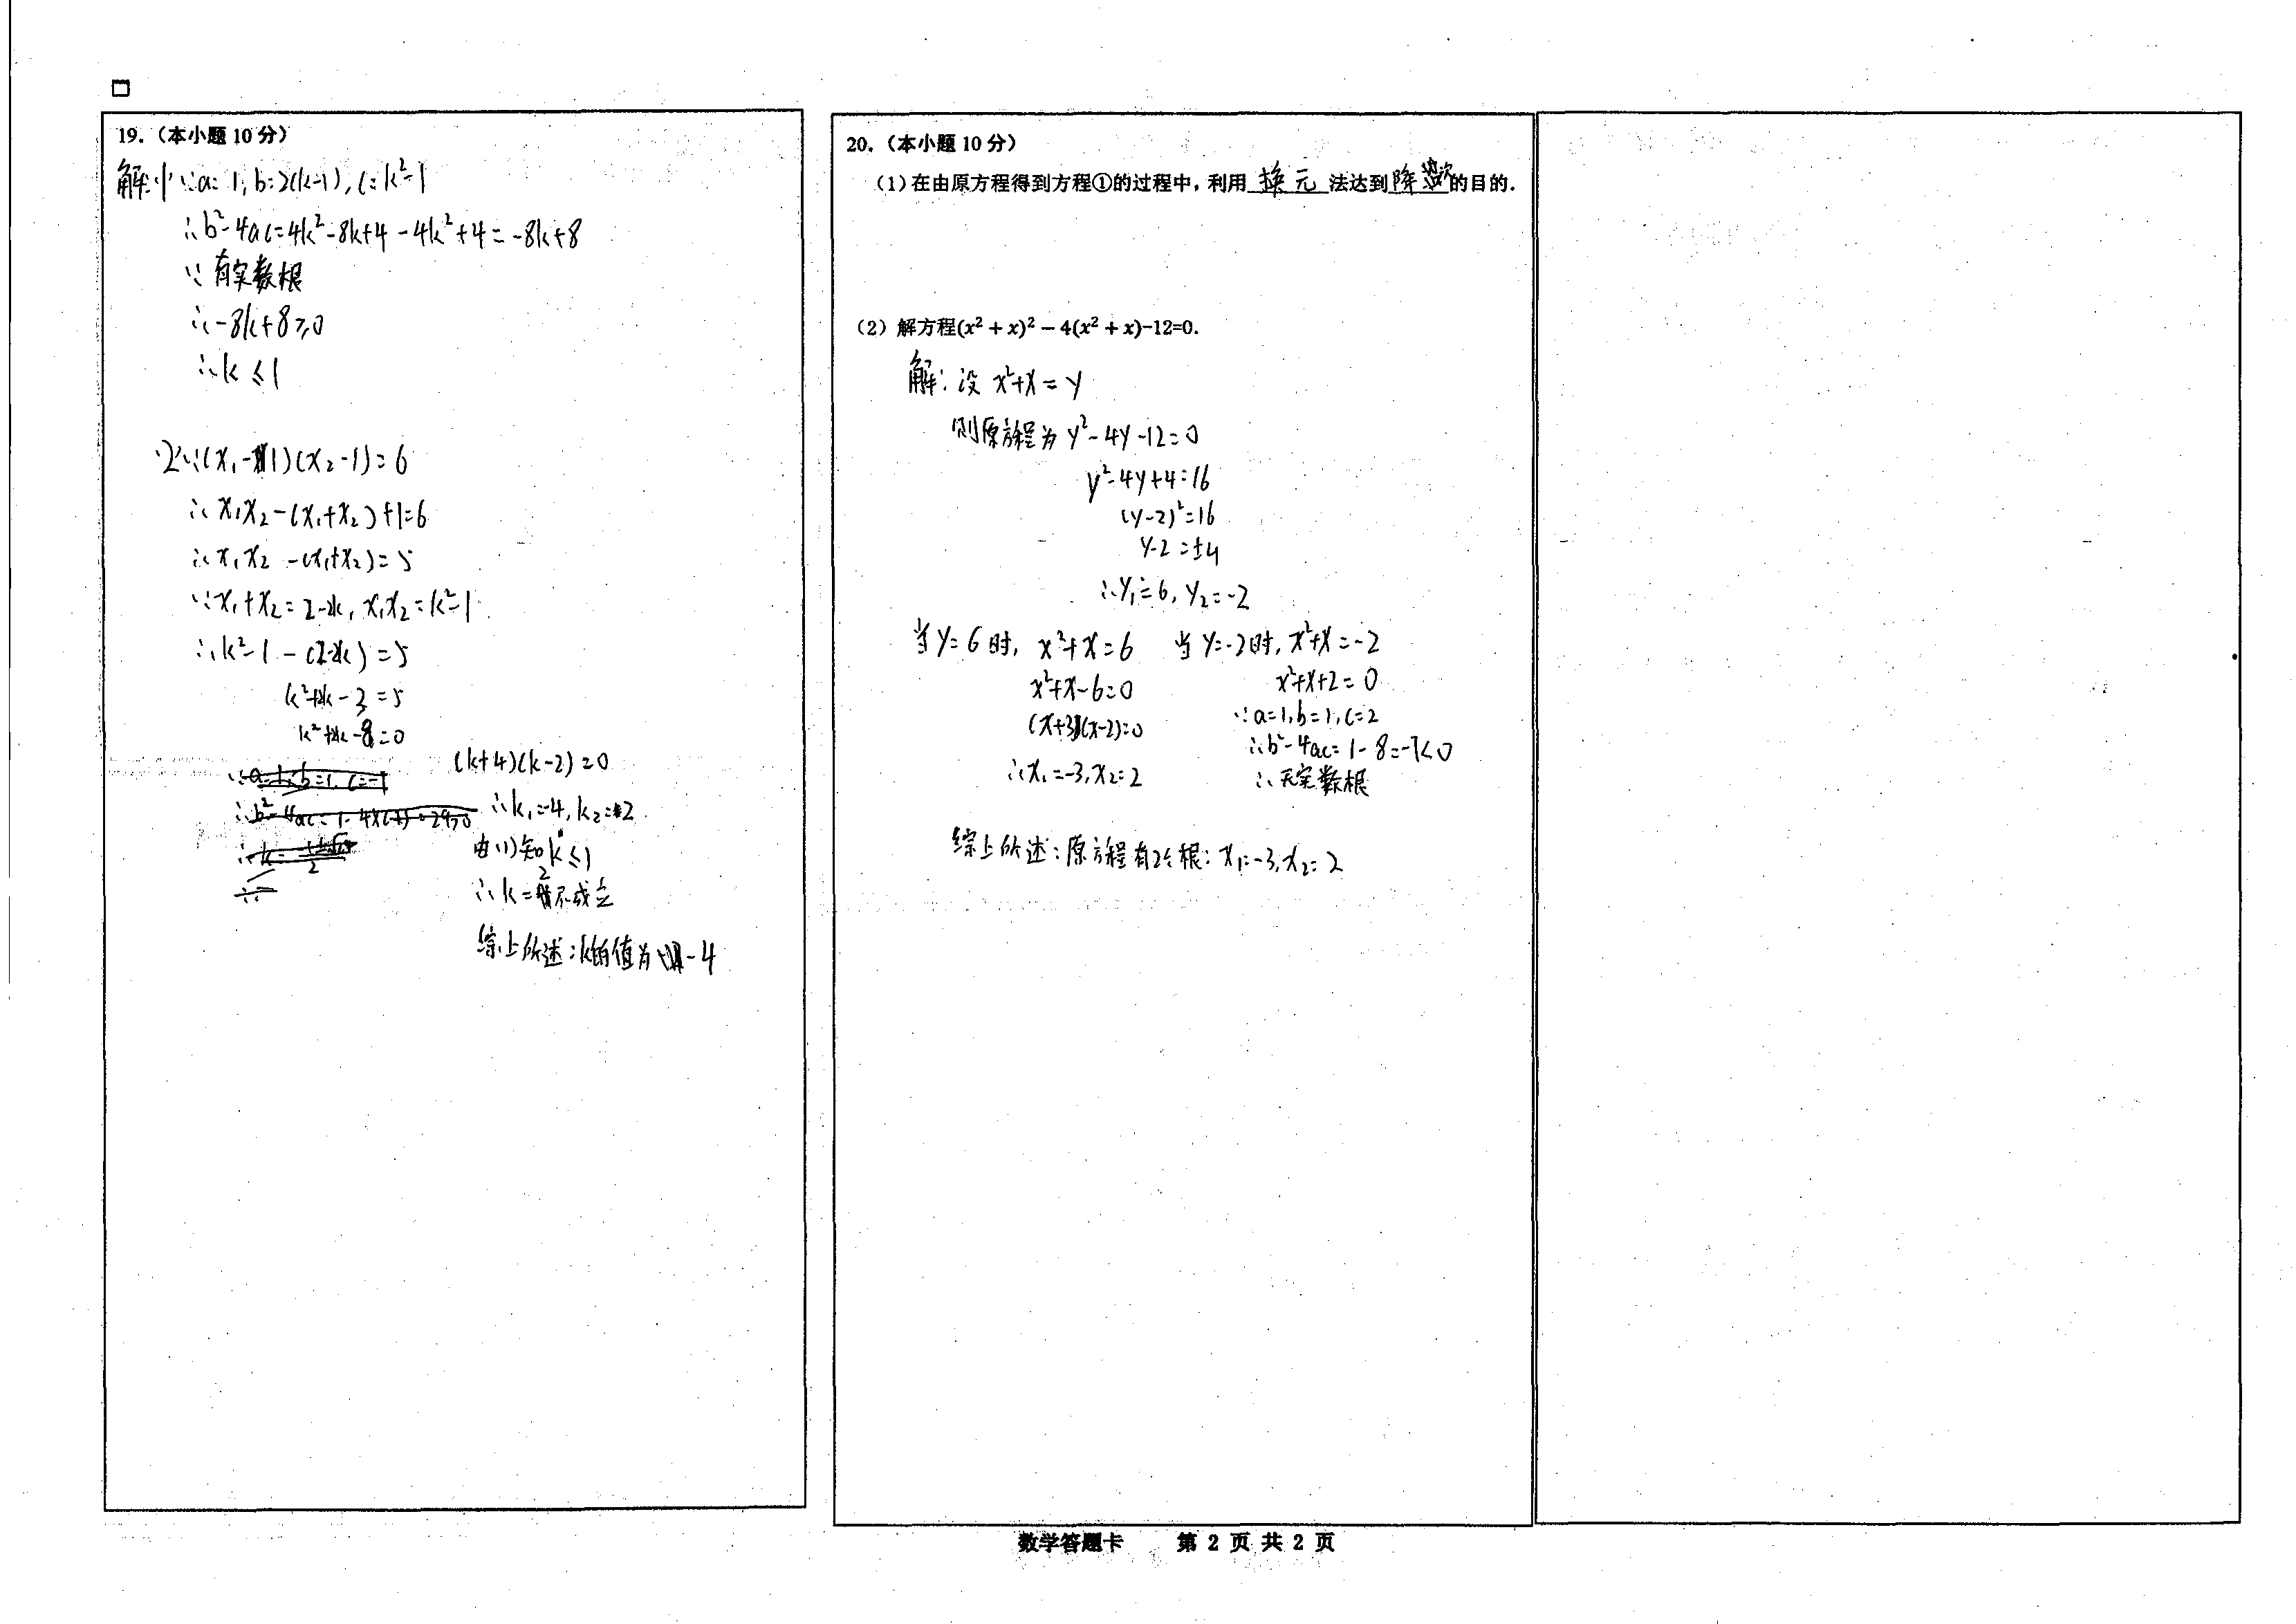 19.（本小题 10 分）
解:(1)∵a=1,b=2(k-1),c=k²-1
∴b²-4ac=4k²-8k+4-4k²+4=-8k+8
∵有实数根
∴-8k+8≥0
∴k≤1
(2)∵(x₁-1)(x₂-1)=6
∴x₁x₂-(x₁+x₂)+1=6
∴x₁x₂-(x₁+x₂)=5
∵x₁+x₂=2-2k, x₁x₂=k²-1
∴k²-1-(2-2k)=5
k²+2k-3=5
k²+2k-8=0
(k+4)(k-2)=0
∴k₁=-4, k₂=2
由(1)知k≤1
∴k=2不成立
综上所述:k的值为-4
20.（本小题 10 分）
（1）在由原方程得到方程①的过程中，利用 换元 法达到 降次 的目的.
（2）解方程(x² + x)² − 4(x² + x)-12=0.
解:设 x²+x=y
则原方程为 y²-4y-12=0
y²-4y+4=16
(y-2)²=16
y-2=±4
∴y₁=6, y₂=-2
当y=6时, x²+x=6
x²+x-6=0
(x+3)(x-2)=0
∴x₁=-3,x₂=2
当y=-2时,x²+x=-2
x²+x+2=0
∵a=1,b=1,c=2
∴b²-4ac=1-8=-7<0
∴无实数根
综上所述:原方程有2个根:x₁=-3,x₂=2
数学答题卡 第 2 页 共 2 页